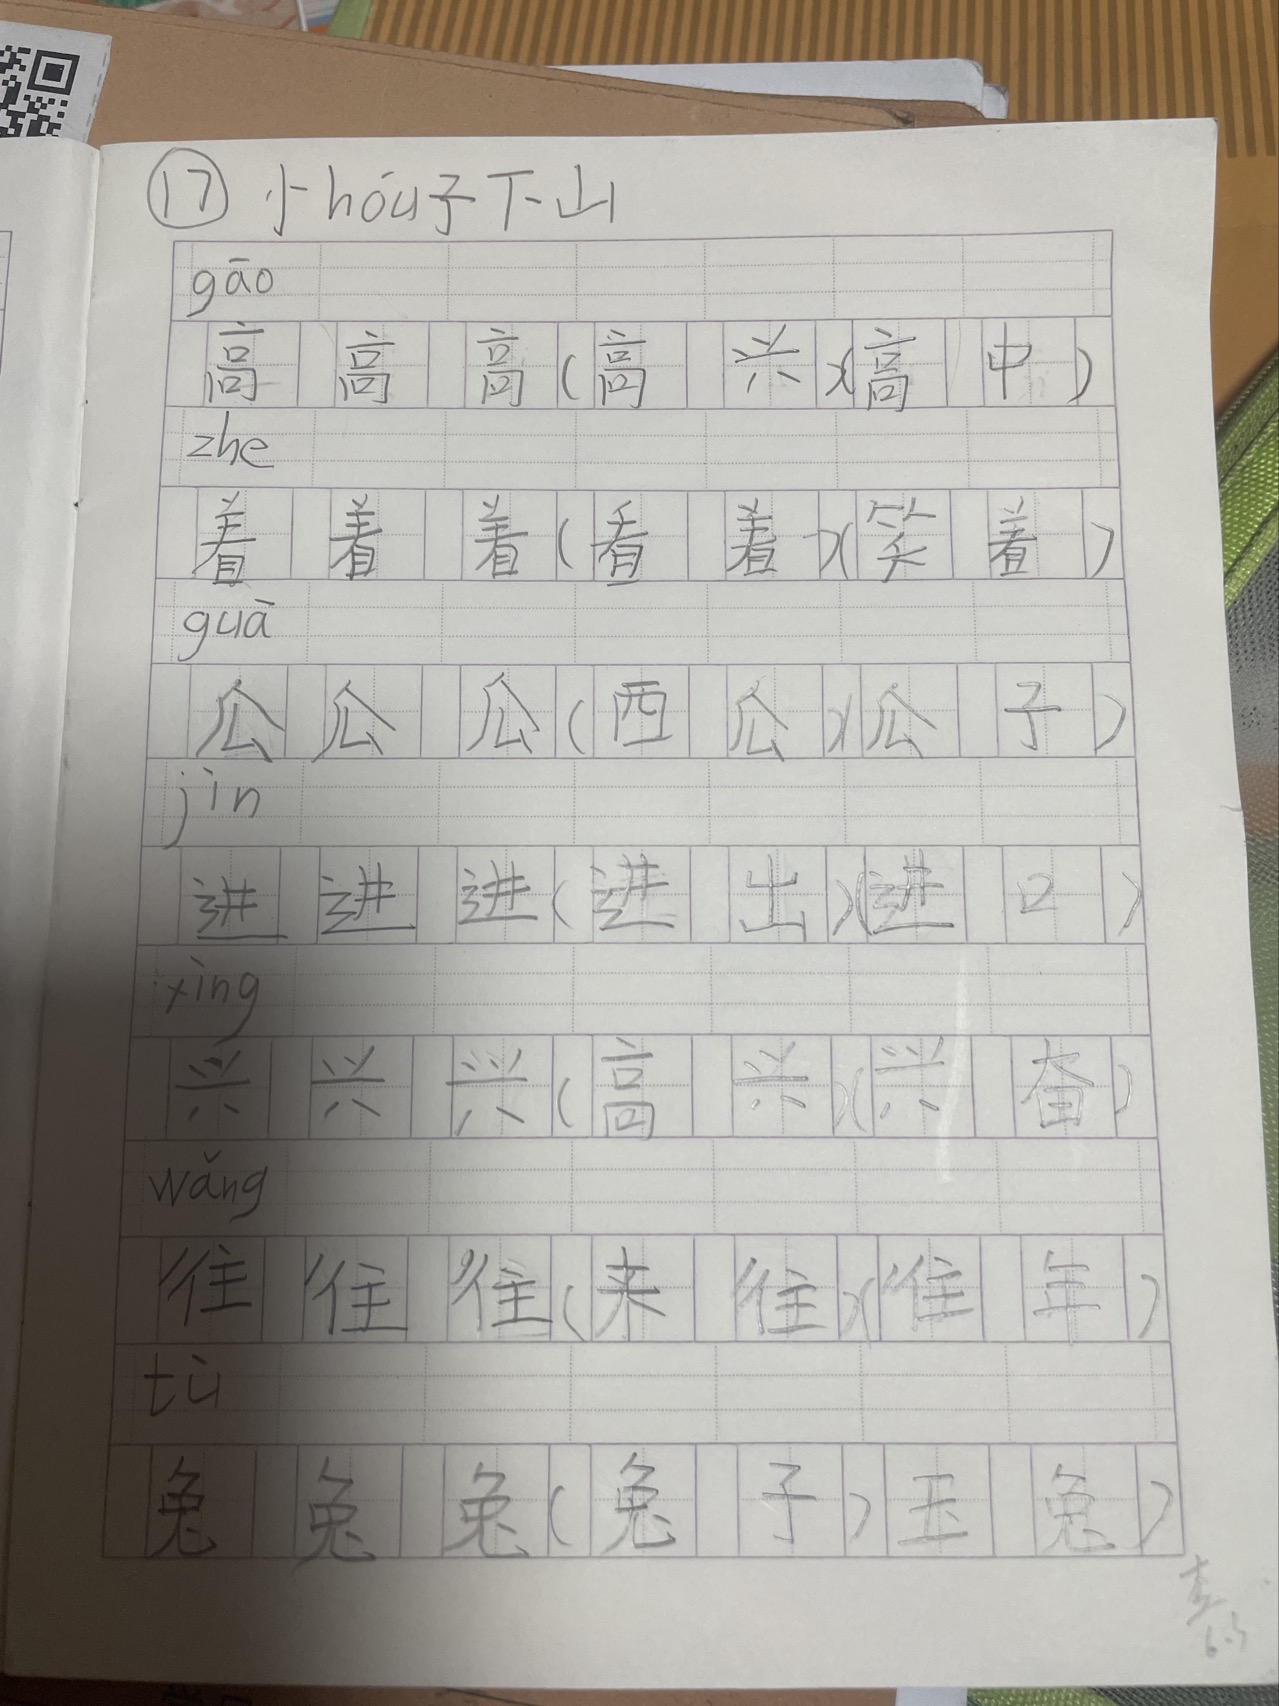 ⑰ 小hóu子下山
gāo
高高高(高兴)(高中)
zhe
着着着(看着)(笑着)
guā
瓜瓜瓜(西瓜)(瓜子)
jìn
进进进(进出)(进口)
xìng
兴兴兴(高兴)(兴奋)
wǎng
往往往(来往)(往年)
tù
兔兔兔(兔子)玉兔)